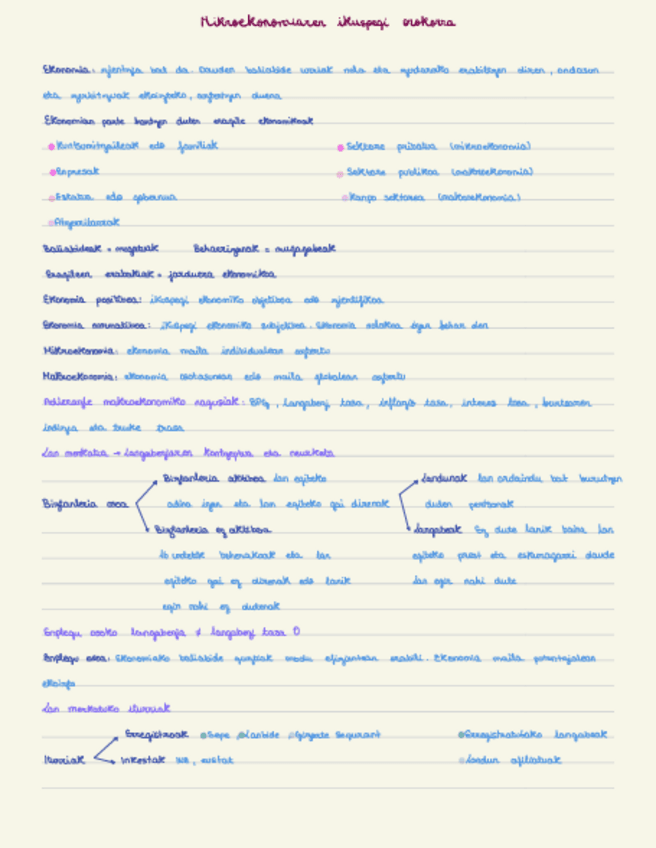 Mikroekonomiaren ikuspegi orokorra
Ekonomia: zientzia bat da. Dauden baliabide urriak nola eta zertarako erabiltzen diren, ondasun
eta zerbitzuak ekoizteko, aztertzen duena
Ekonomian parte hartzen duten eragile ekonomikoak
Kontsumitzaileak edo familiak
Sektore pribatua (mikroekonomia)
Enpresak
Sektore publikoa (makroekonomia)
Estatua edo gobernua
Kanpo sektorea (makroekonomia)
Atzerritarrak
Baliabideak = mugatuak Beharrizanak = mugagabeak
Eragileen erabakiak = jarduera ekonomikoa
Ekonomia positiboa: ikuspegi ekonomiko objetiboa edo zientifikoa
Ekonomia normatiboa: ikuspegi ekonomiko subjetiboa. Ekonomia nolakoa izan behar den
Mikroekonomia: ekonomia maila individualean aztertu
Makroekonomia: ekonomia osotasunean edo maila globalean aztertu
Adierazle makroekonomiko nagusiak: BPG, langabezi tasa, inflazio tasa, interes tasa, burtsaren
indizea eta truke tasa
Lan merkatua → Langabeziaren kontzeptua eta neurketa
Biztanleria aktiboa lan egiteko
Landunak lan ordaindu bat burutzen
Biztanleria osoa
adina izan eta lan egiteko gai direnak
duten pertsonak
Biztanleria ez aktiboa
Langabeak Ez dute lanik baina lan
16 urtetik beherakoak eta lan
egiteko prest eta eskuragarri daude
egiteko gai ez direnak edo lanik
lan egin nahi dute
egin nahi ez dutenak
Enplegu osoko langabezia ≠ langabezi tasa 0
Enplegu osoa: Ekonomiako baliabide guztiak modu efizientean erabili. Ekonomia maila potentzialean
ekoiztu
Lan merkatuko iturriak
Erregistroak Sepe Lanbide Gizarte Segurantz
Erregistratutako langabeak
Iturriak
Inkestak INE, eustat
Landun afiliatuak